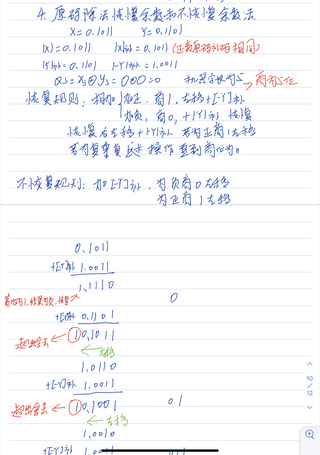 4. 原码除法恢复余数和不恢复余数法
X=0.1011 Y=0.1101
|X|=0.1011 |X|补=0.1011 (正数原码补码相同)
|Y|补=0.1101 [-|Y|]补=1.0011
Qs=Xs⊕Ys=0⊕0=0 机器字长为5→商为5位
恢复规则: 相加 为正,商1,左移+[-|Y|]补
为负,商0,+|Y|补 恢复
恢复后左移+[-|Y|]补 若为正商1左移
若为负重复上述操作直到商位为n
不恢复规则: 加[-|Y|]补, 为负商0左移
为正商1左移
0.1011
+[-|Y|]补 1.0011
1.1110
0
+|Y|补 0.1101
超出舍去 ← 1 0.1011
← 左移
1.0110
+[-|Y|]补 1.0011
超出舍去 ← 1 0.1001 01
← 左移
1.0010
+[-|Y|]补 1.0011
10
12